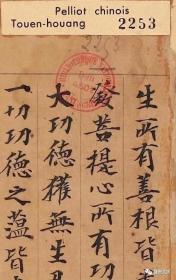 Pelliot chinois
Touen-houang 2253
生所有善根皆
發菩提心所有功
大功德獲無生
一切功德之藴皆